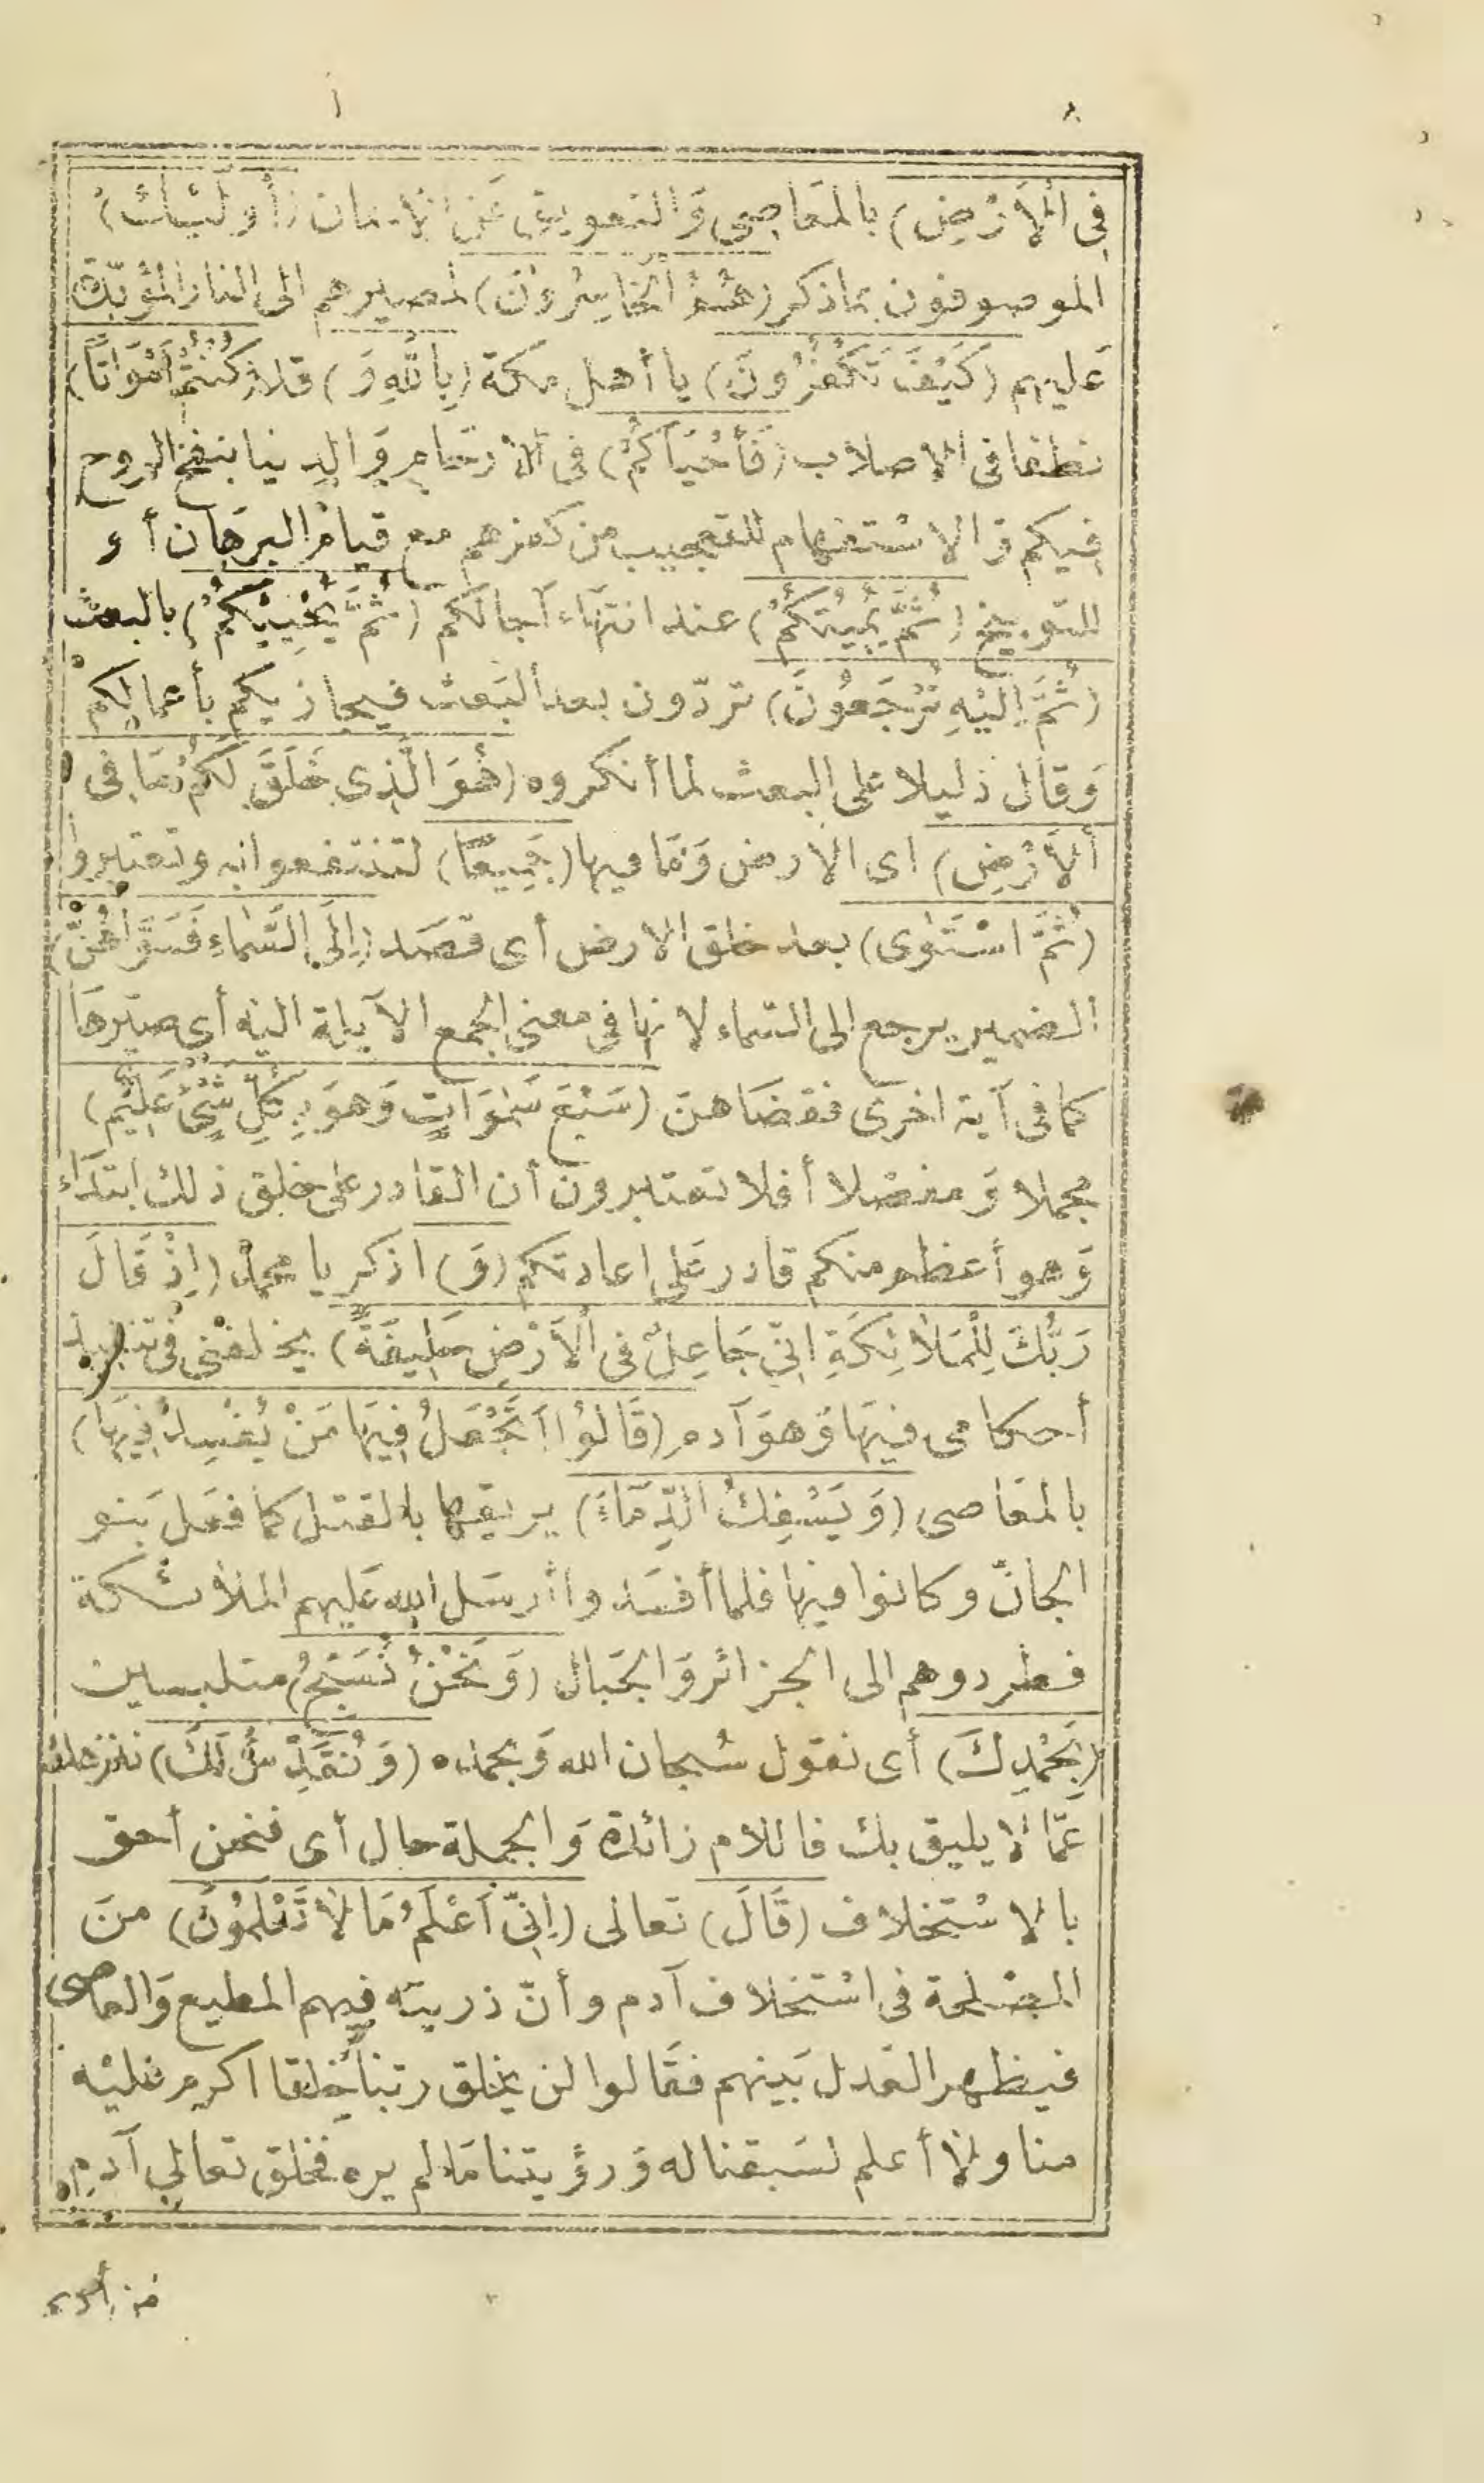 ٨
فِى اْلأَرْضِ) بالمعَاصِى وَالتعويق عَن الايمان (أُولَئِكَ)
الموصوفون بماذكر (هُمُ الْخَاسِرُونَ) لمصيرهم الى النار المؤبّدة
عَليهم (كَيْفَ تَكْفُرُونَ) يا أهل مكة (بِاللّٰهِ وَ) قد (كُنْتُمْ أَمْوَاتًا)
نطفا فى الاصلاب (فَأَحْيَاكُمْ) فى الأرحَامِ وَالدنيا بنفخ الروح
فيكم وَالاسْتفهام للتعجيب من كفرهم مع قيام البرهَان أو
للتوبيخ (ثُمَّ يُمِيتُكُمْ) عند انتهَاء آجالكم (ثُمَّ يُحْيِيكُمْ) بالبعث
(ثُمَّ اِلَيْهِ تُرْجَعُونَ) تردّون بعد البَعث فيجازيكم بأعمالِكم
وَقال دَليلا على البعث لما أنكروه (هُوَ الَّذِى خَلَقَ لَكُمْ مَا فِى
اْلأَرْضِ) اى الارض وَمَا فيها (جَمِيعًا) لتنتفعوا به وتعتبروا
(ثُمَّ اسْتَوٰى) بعد خلق الارض أى قصَد (اِلَى السَّمَاءِ فَسَوَّاهُنَّ)
الضمير يرجع الى السّماء لانها فى معنى الجمع الآيلة اليْه أى صيّرهَا
كما فى آية اخرَى فقضَاهنّ (سَبْعَ سَمٰوَاتٍ وَهُوَ بِكُلِّ شَىْءٍ عَلِيْمٌ)
مجملا وَمفصّلا أفلا تعتبرون أن القادر على خلق ذلك ابتدَاء
وَهو أعظم منكم قادر عَلى اعادتكم (وَ) اذكر يا محمد (اِذْ قَالَ
رَبُّكَ لِلْمَلاَئِكَةِ اِنِّى جَاعِلٌ فِى اْلأَرْضِ خَلِيفَةً) يخلفنى فى تنفيذ
أحكامى فيهَا وَهوَ آدم (قَالُوْا اَتَجْعَلُ فِيهَا مَنْ يُفْسِدُ فِيهَا)
بالمعَاصى (وَيَسْفِكُ الدِّمَاءَ) يريقها بالقتل كما فعَل بَنو
الجانّ وكانوا فيها فلما أفسَدوا أرسَل الله عَليهم الملائكة
فطردوهم الى الجزائر وَالجبَال (وَنَحْنُ نُسَبِّحُ) متلبسين
(بِحَمْدِكَ) أى نقول سُبحان الله وَبحمده (وَنُقَدِّسُ لَكَ) ننزهك
عَمَّا لا يليق بك فاللام زائدة وَالجملة حال أى فنحن أحق
بالاسْتخلاف (قَالَ) تعالى (اِنِّى اَعْلَمُ مَا لاَ تَعْلَمُونَ) منَ
المصْلحة فى اسْتخلاف آدم وأنّ ذريته فيهم المطيع وَالعاصى
فيظهر العَدل بَينهم فقَالوا لن يخلق ربّنا خلقا أكرم عَليْه
منا ولا أعلم لسَبقنا له وَرؤيتنا مَا لم يره فخلق تعالى آدم